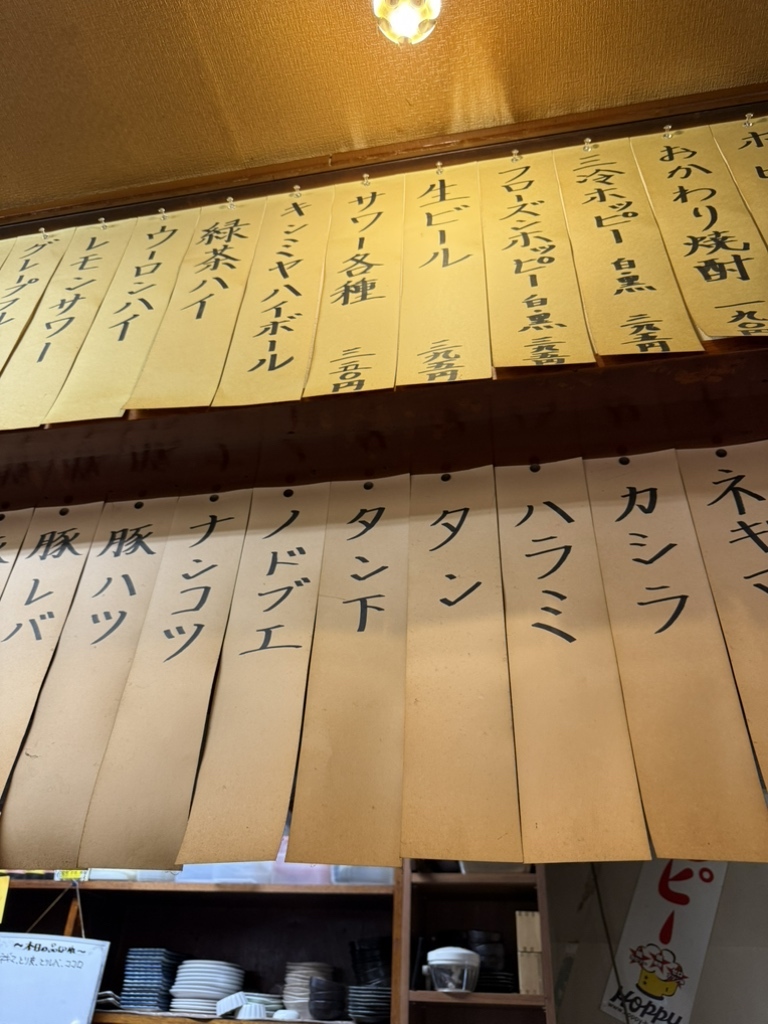 おかわり焼酎
三冷ホッピー 白黒 三九五円
フローズンホッピー 白・黒 三九五円
生ビール 三九五円
サワー各種 三五〇円
キンミヤハイボール
緑茶ハイ
ウーロンハイ
レモンサワー
グレープフル
ネギマ
カシラ
ハラミ
タン
タン下
ノドブエ
ナンコツ
豚ハツ
豚レバ
ピー
HOPPY